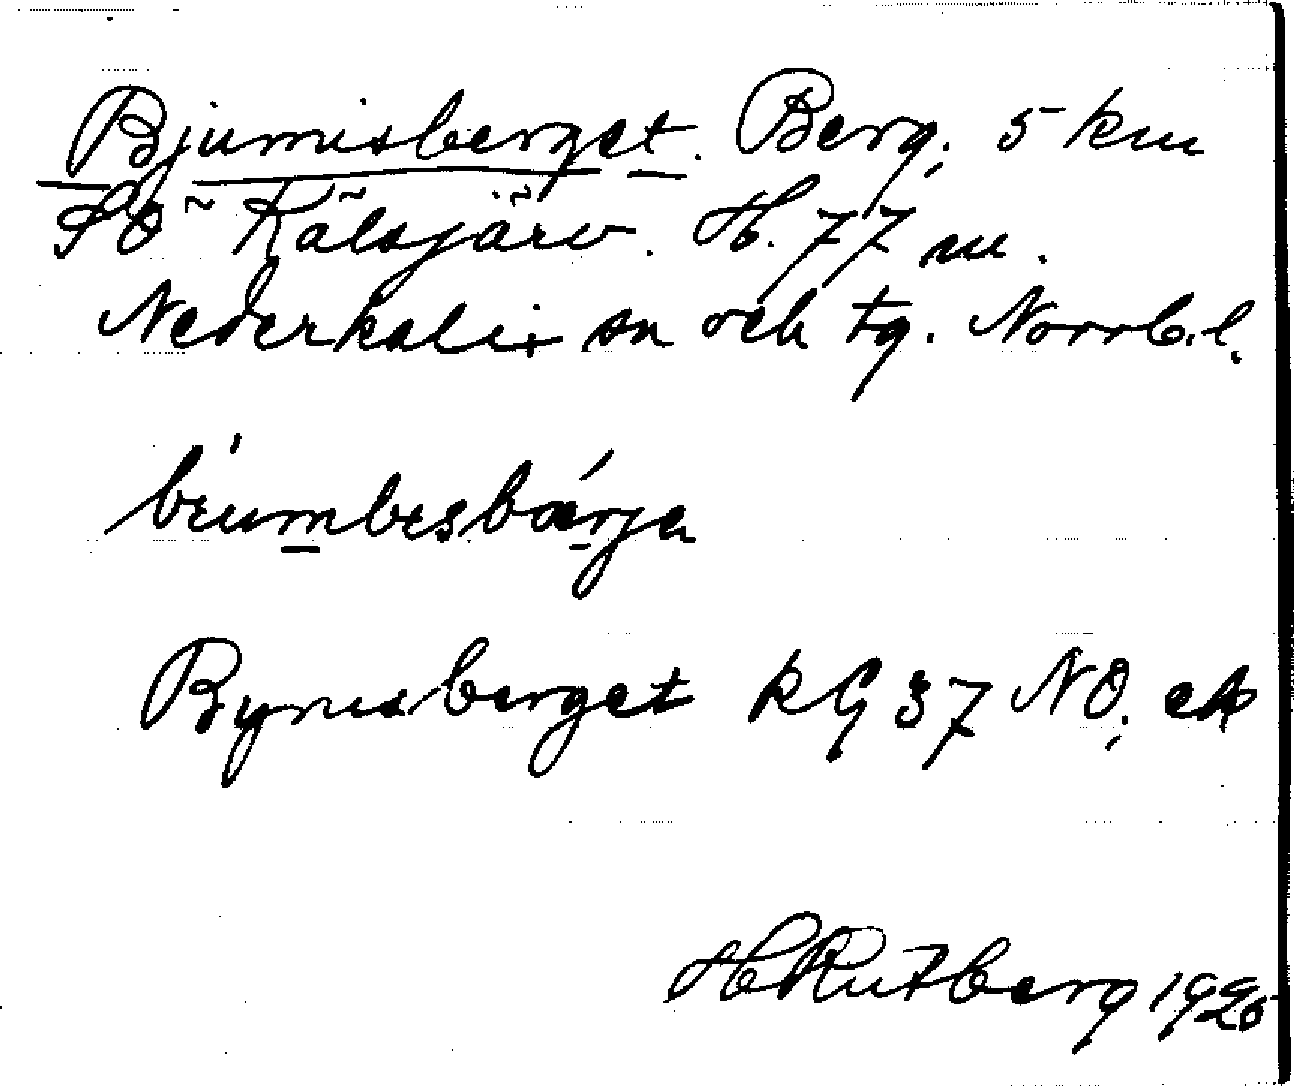 Bjumisberget. Berg; 5 km
SO Kälsjärv. H. 77 m.
Nederkalix sn och tg. Norrb. l.
Bymisberget kG 37 NO; ek
H Rutberg 1925